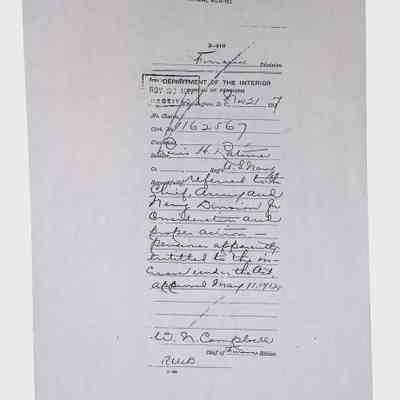 3-416
Finance Division
DEPARTMENT OF THE INTERIOR
BUREAU OF PENSIONS
Washington, Nov 21, 191
No. Claim
Cert. No. 1162567
Soldier Lewis H. Latimer
Co. Reg't U.S. Navy
Respectfully referred to the
Chief, Army and
Navy Division for
Consideration and
proper action—
pensioner apparently
entitled to the in-
crease under the Act,
approved May 11, 1912
W. N. Campbell
Chief of Finance Division